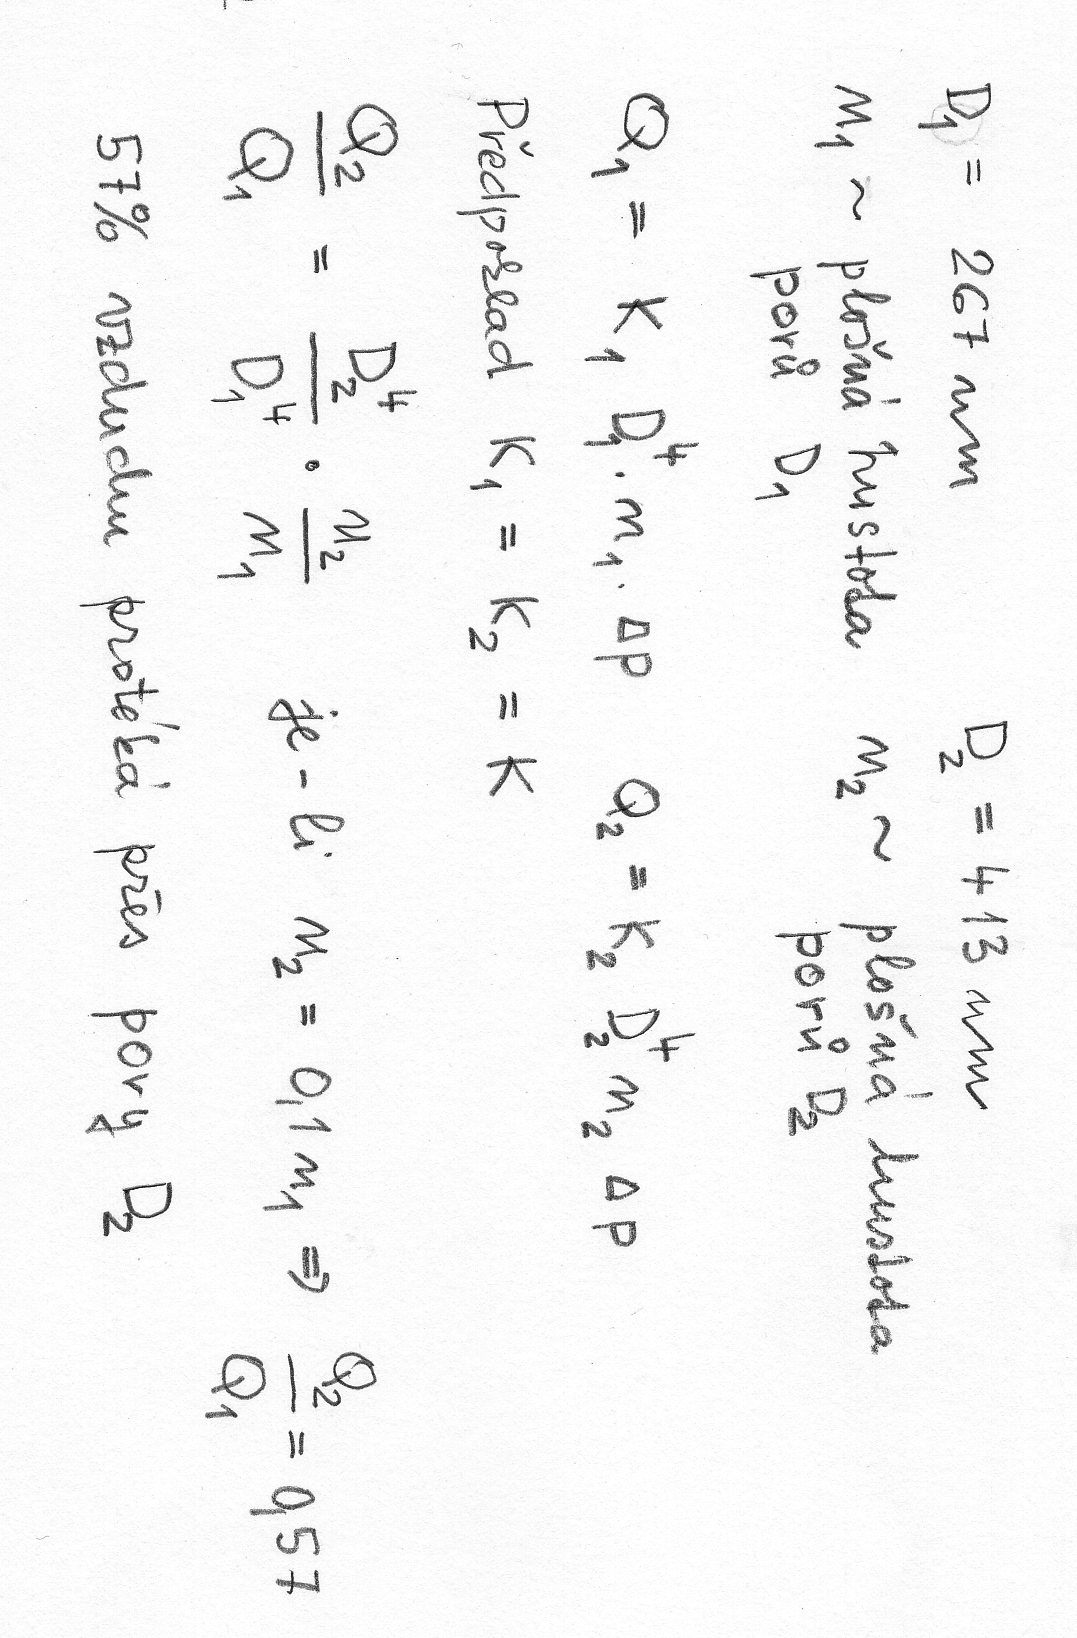 D₁ = 267 nm D₂ = 413 nm
n₁ ~ plošná hustota n₂ ~ plošná hustota
porů D₁ porů D₂
Q₁ = K₁ D₁⁴ · n₁ · Δp Q₂ = K₂ D₂⁴ n₂ Δp
Předpoklad K₁ = K₂ = K
Q₂/Q₁ = D₂⁴/D₁⁴ · n₂/n₁ je-li n₂ = 0,1 n₁ ⇒ Q₂/Q₁ = 0,57
57% vzduchu protéká přes póry D₂